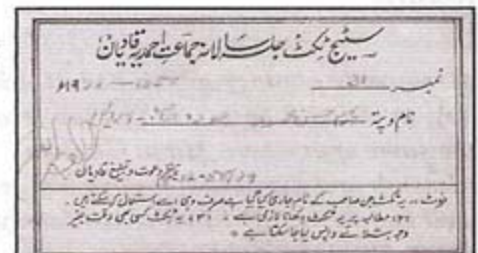 سٹیج ٹکٹ جلسہ سالانہ جماعت احمدیہ قادیان
نمبر ۱۹ء
نام و پتہ
دعوت و تبلیغ قادیان
نوٹ:۔ یہ ٹکٹ جن صاحب کے نام جاری کیا گیا ہے صرف وہی اسے استعمال کر سکتے ہیں۔
(۲) مطالبہ پر یہ ٹکٹ دکھانا لازمی ہے۔ (۳) یہ ٹکٹ کسی بھی وقت بغیر
وجہ بتلائے واپس لیا جا سکتا ہے۔